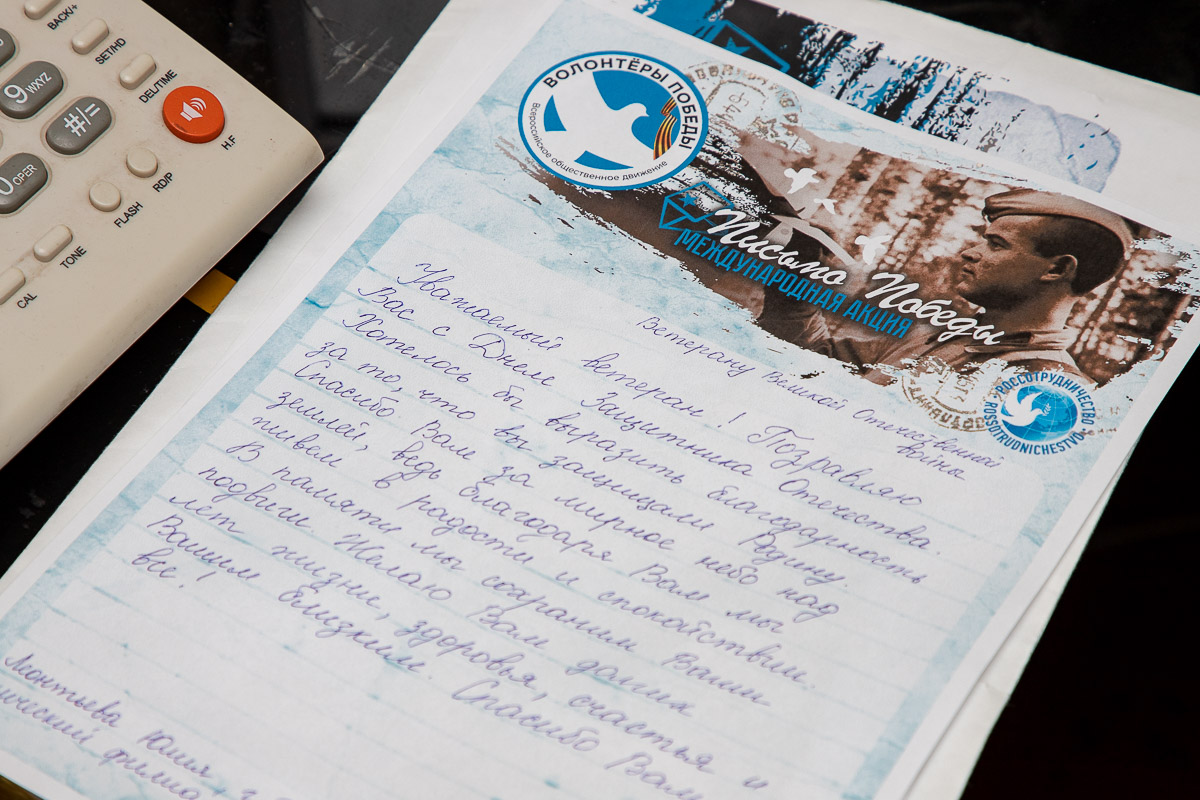 BACK/+
SET/HD
DEL/TIME
9 WXYZ
#/=
H.F
0 OPER
RD/P
FLASH
TONE
CAL
ВОЛОНТЁРЫ ПОБЕДЫ
Всероссийское общественное движение
Письмо Победы
МЕЖДУНАРОДНАЯ АКЦИЯ
РОССОТРУДНИЧЕСТВО
ROSSOTRUDNICHESTVO
Ветерану Великой Отечественной
война
Уважаемый ветеран! Поздравляю
Вас с Днём Защитника Отечества.
Хотелось бы выразить благодарность
за то, что вы защищали Родину.
Спасибо Вам за мирное небо над
землей, ведь благодаря Вам мы
живем в радости и спокойствии.
В памяти мы сохраним Ваши
подвиги. Желаю Вам долгих
лет жизни, здоровья, счастья и
Вашим близким. Спасибо Вам
все!